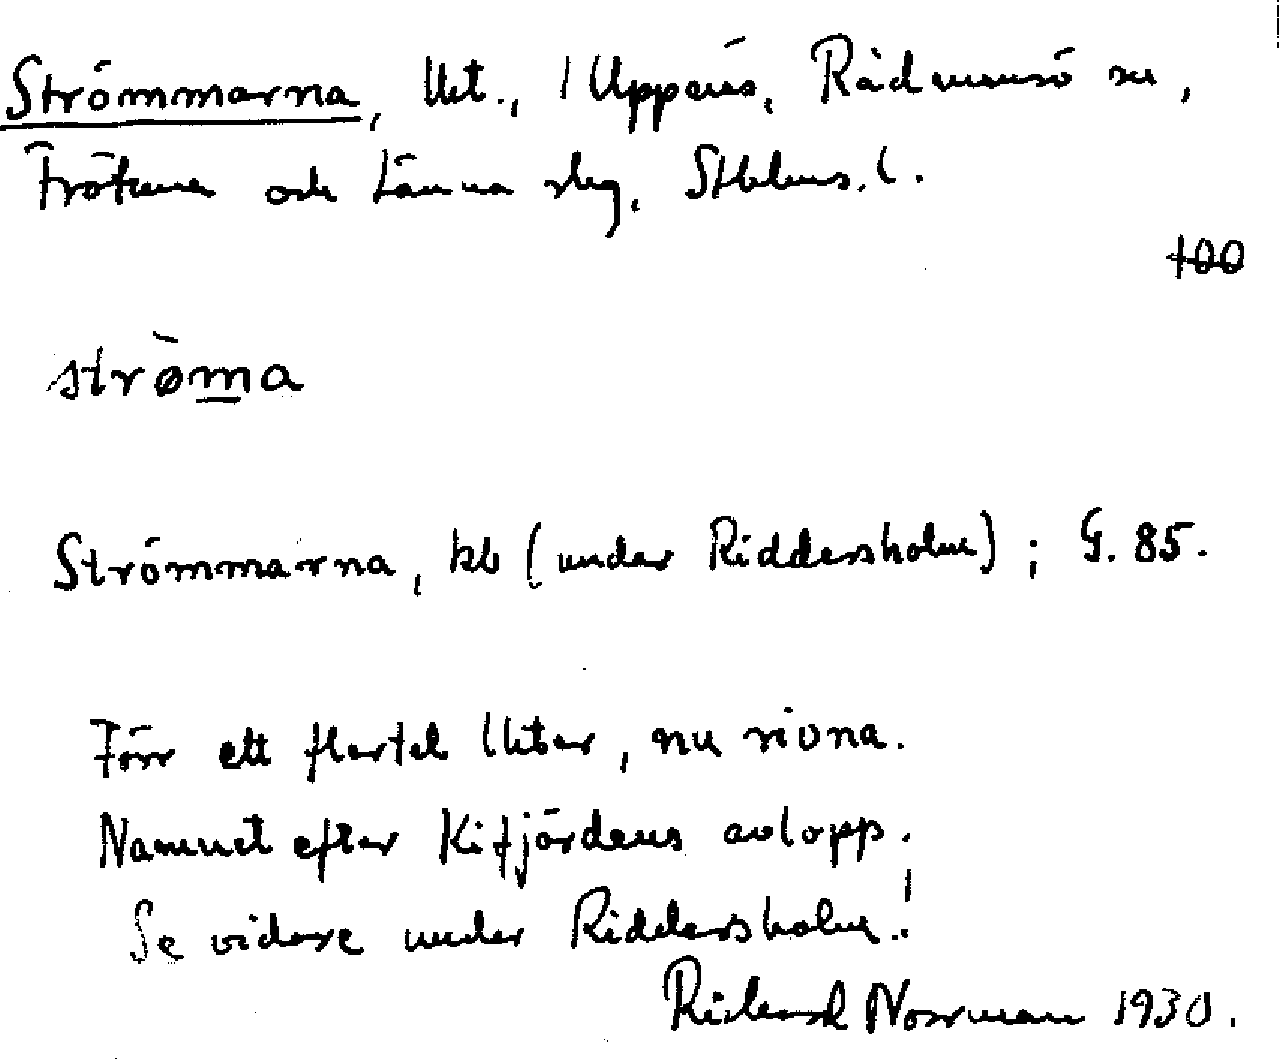 Strömmarna, lht., i Uppenäs, Rådmansö sn,
Frötuna och Länna slg, Sthlms. l.
100
strø̀ma
Strömmarna, kb (under Riddersholm); G. 85.
Förr ett flertal lhtar, nu rivna.
Namnet efter Kifjärdens avlopp.
Se vidare under Riddersholm!
Rickard Norrman 1930.